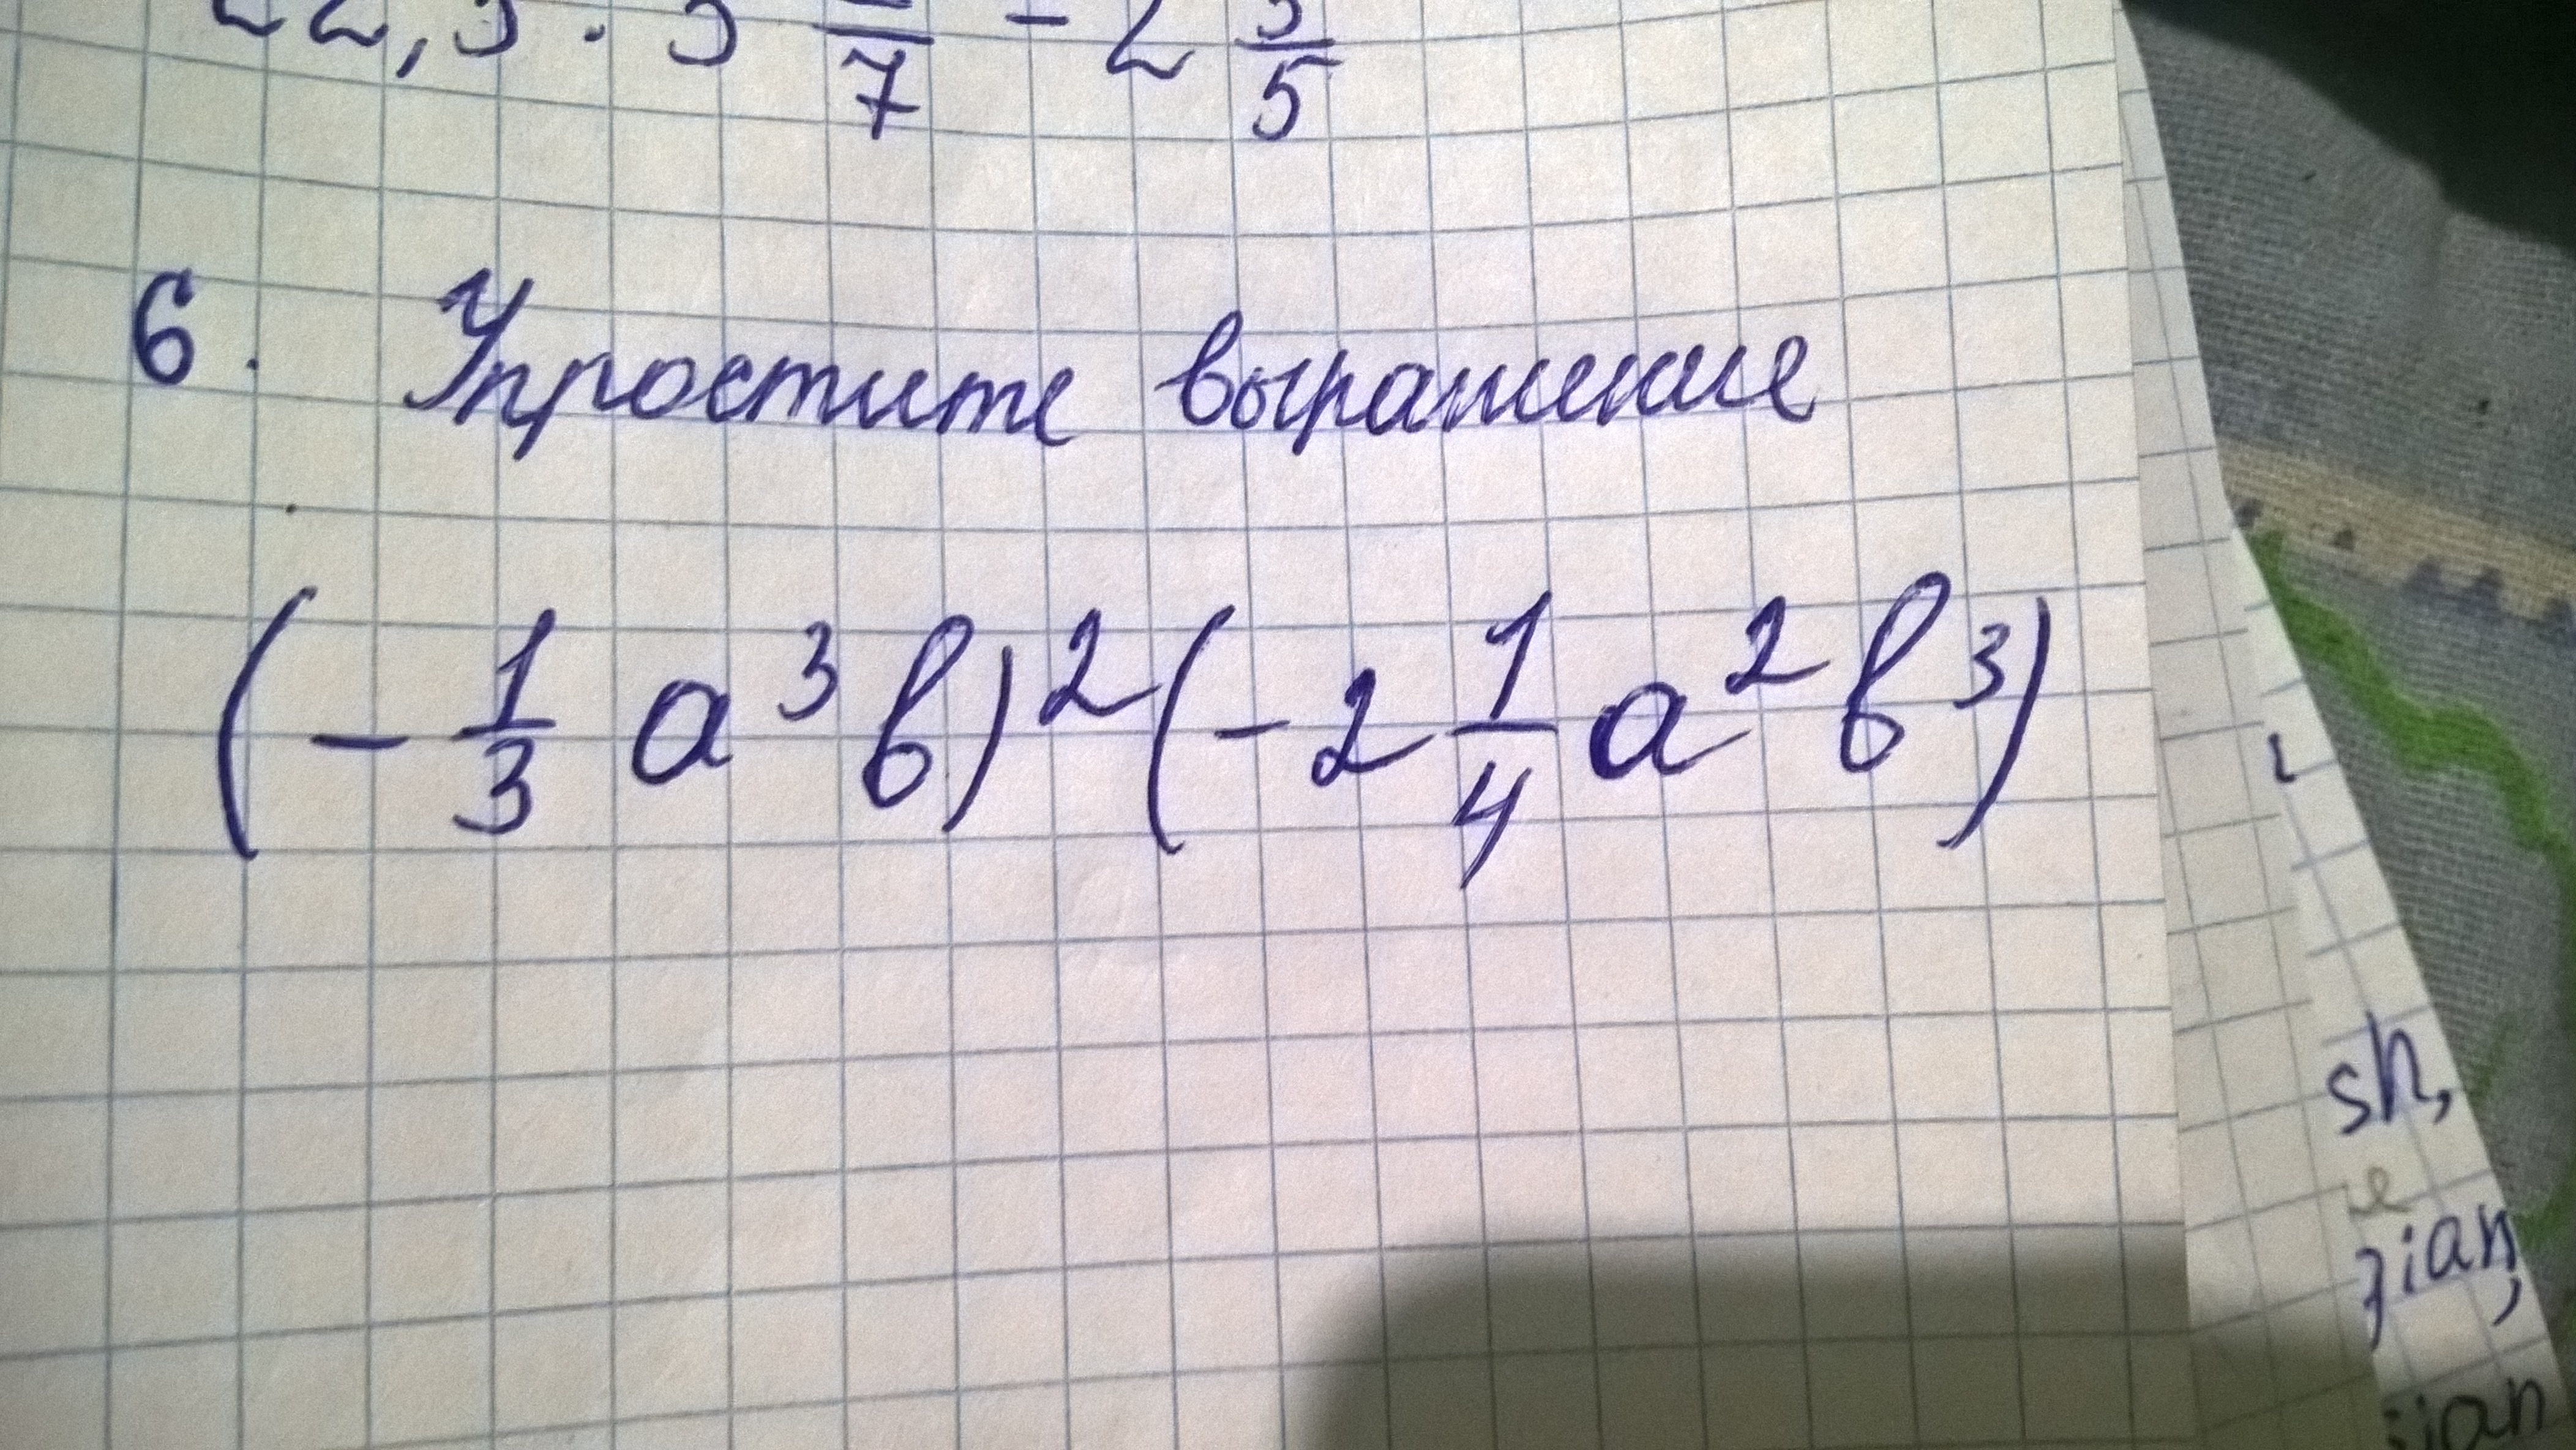 7 - 2 3/5
6. Упростите выражение
(- 1/3 a³b)² (- 2 1/4 a² b³)
sh,
е
gian,